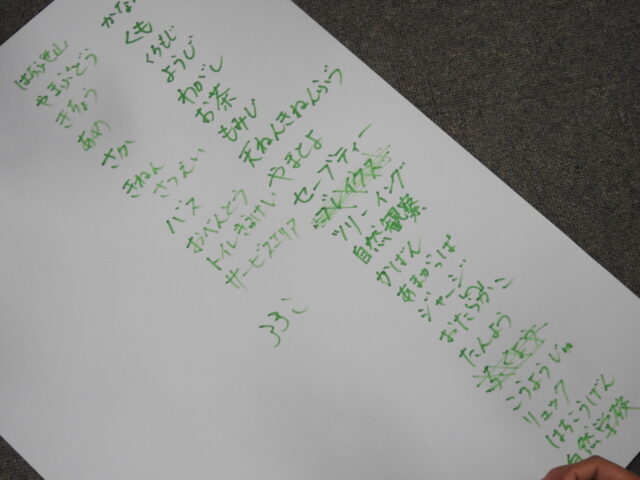 はちぶせ山
やまぶどう
きちょう
あめ
さか
きねん
さつえい
バス
おべんとう
トイレきゅうけい
サービスエリア
ふろく
かな
くも
くろもじ
ようじ
わがし
お茶
もみじ
天ねんきねんぶつ
やまとよ
セーブティー
ブレイクスー
ツリーイング
自然観察
かばん
あまがっぱ
ジャージ
おたちがい
たんよう
こうようじゅ
リュック
はちこうげん
自然学校